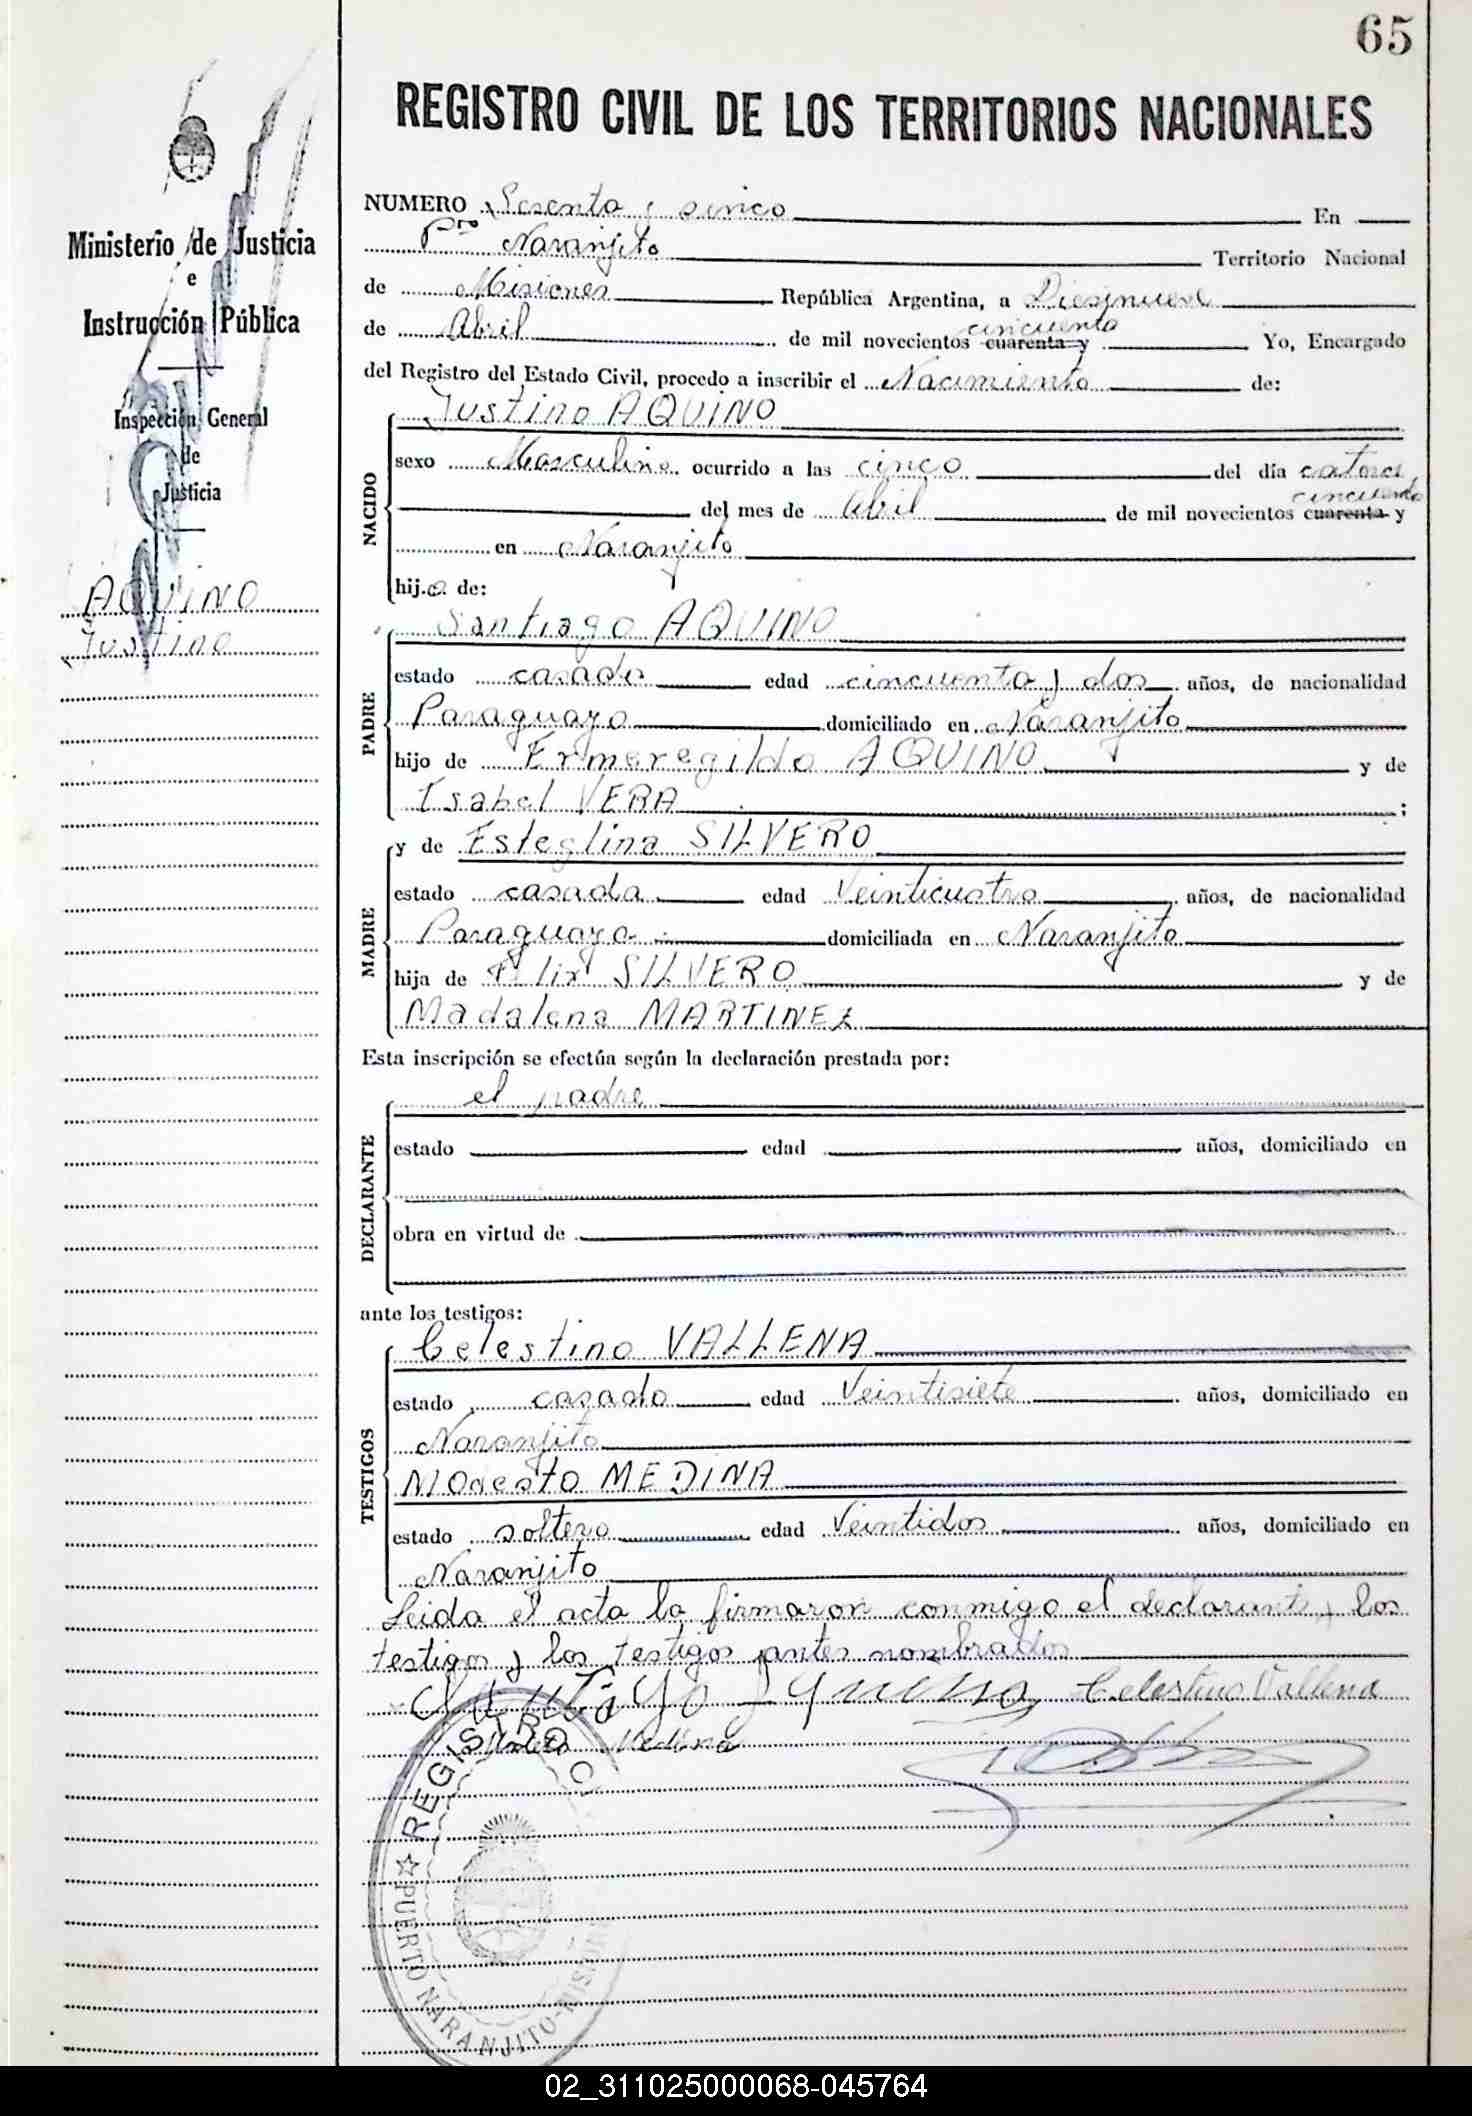 65
REGISTRO CIVIL DE LOS TERRITORIOS NACIONALES
Ministerio de Justicia
e
Instrucción Pública
Inspección General
de
Justicia
AQUINO
Justino
NUMERO Sesenta y sinco En
Pto Naranjito Territorio Nacional
de Misiones República Argentina, a Diesinueve
de Abril de mil novecientos cuarenta y cincuenta Yo, Encargado
del Registro del Estado Civil, procedo a inscribir el Nacimiento de:
NACIDO
Justino AQUINO
sexo Masculino ocurrido a las cinco del día catorce
del mes de Abril de mil novecientos cuarenta y cincuenta
en Naranjito
hij.o de:
PADRE
Santiago AQUINO
estado casado edad cincuenta y dos años, de nacionalidad
Paraguayo domiciliado en Naranjito
hijo de Ermeregildo AQUINO y de
Isabel VERA ;
MADRE
y de Esteglina SILVERO
estado casada edad Veinticuatro años, de nacionalidad
Paraguaya domiciliada en Naranjito
hija de Felix SILVERO y de
Madalena MARTINEZ
Esta inscripción se efectúa según la declaración prestada por:
DECLARANTE
el padre
estado edad años, domiciliado en
obra en virtud de
ante los testigos:
TESTIGOS
Celestino VALLENA
estado casado edad Veintisiete años, domiciliado en
Naranjito
Modesto MEDINA
estado soltero edad Veintidos años, domiciliado en
Naranjito
Leida el acta la firmaron conmigo el declarante y los
testigos y los testigos antes nombrados
Santiago Aquino Celestino Vallena
Medina
REGISTRO
PUERTO NARANJITO-MISIONES
02_311025000068-045764